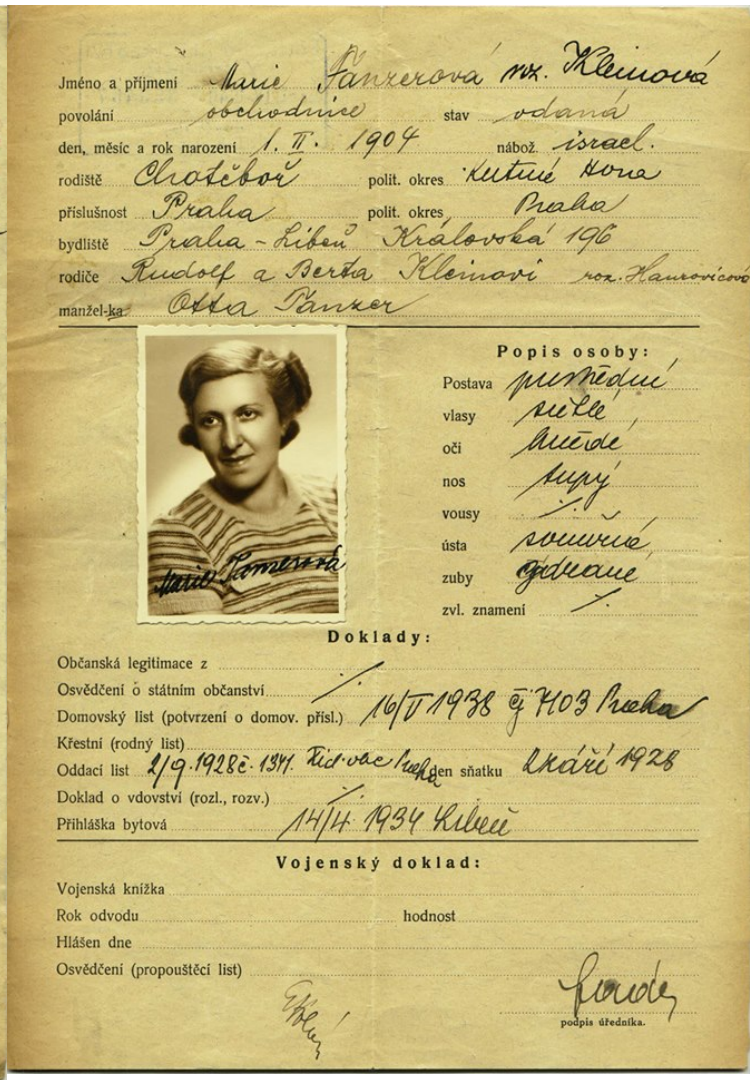 Jméno a příjmení Marie Tänzerová roz. Kleinová
povolání obchodnice stav vdaná
den, měsíc a rok narození 1. II. 1904 nábož. israel.
rodiště Chotěboř polit. okres Kutná Hora
příslušnost Praha polit. okres Praha
bydliště Praha - Libeň Královská 196
rodiče Rudolf a Berta Kleinovi roz.
manžel-ka Otta Tänzer
Popis osoby:
Postava prostřední
vlasy světlé
oči hnědé
nos tupý
vousy ·/.
ústa souměrná
zuby zdravé
zvl. znamení ·/.
Marie Tänzerová
Doklady:
Občanská legitimace z
Osvědčení o státním občanství ·/.
Domovský list (potvrzení o domov. přísl.) 16/V 1938 čj 7103 Praha
Křestní (rodný list)
Oddací list 2/9. 1928 č. 1341. Praha den sňatku 2 září 1928
Doklad o vdovství (rozl., rozv.) ·/.
Přihláška bytová 14/4 1934 Libeň
Vojenský doklad:
Vojenská knížka
Rok odvodu hodnost
Hlášen dne
Osvědčení (propouštěcí list)
podpis úředníka.